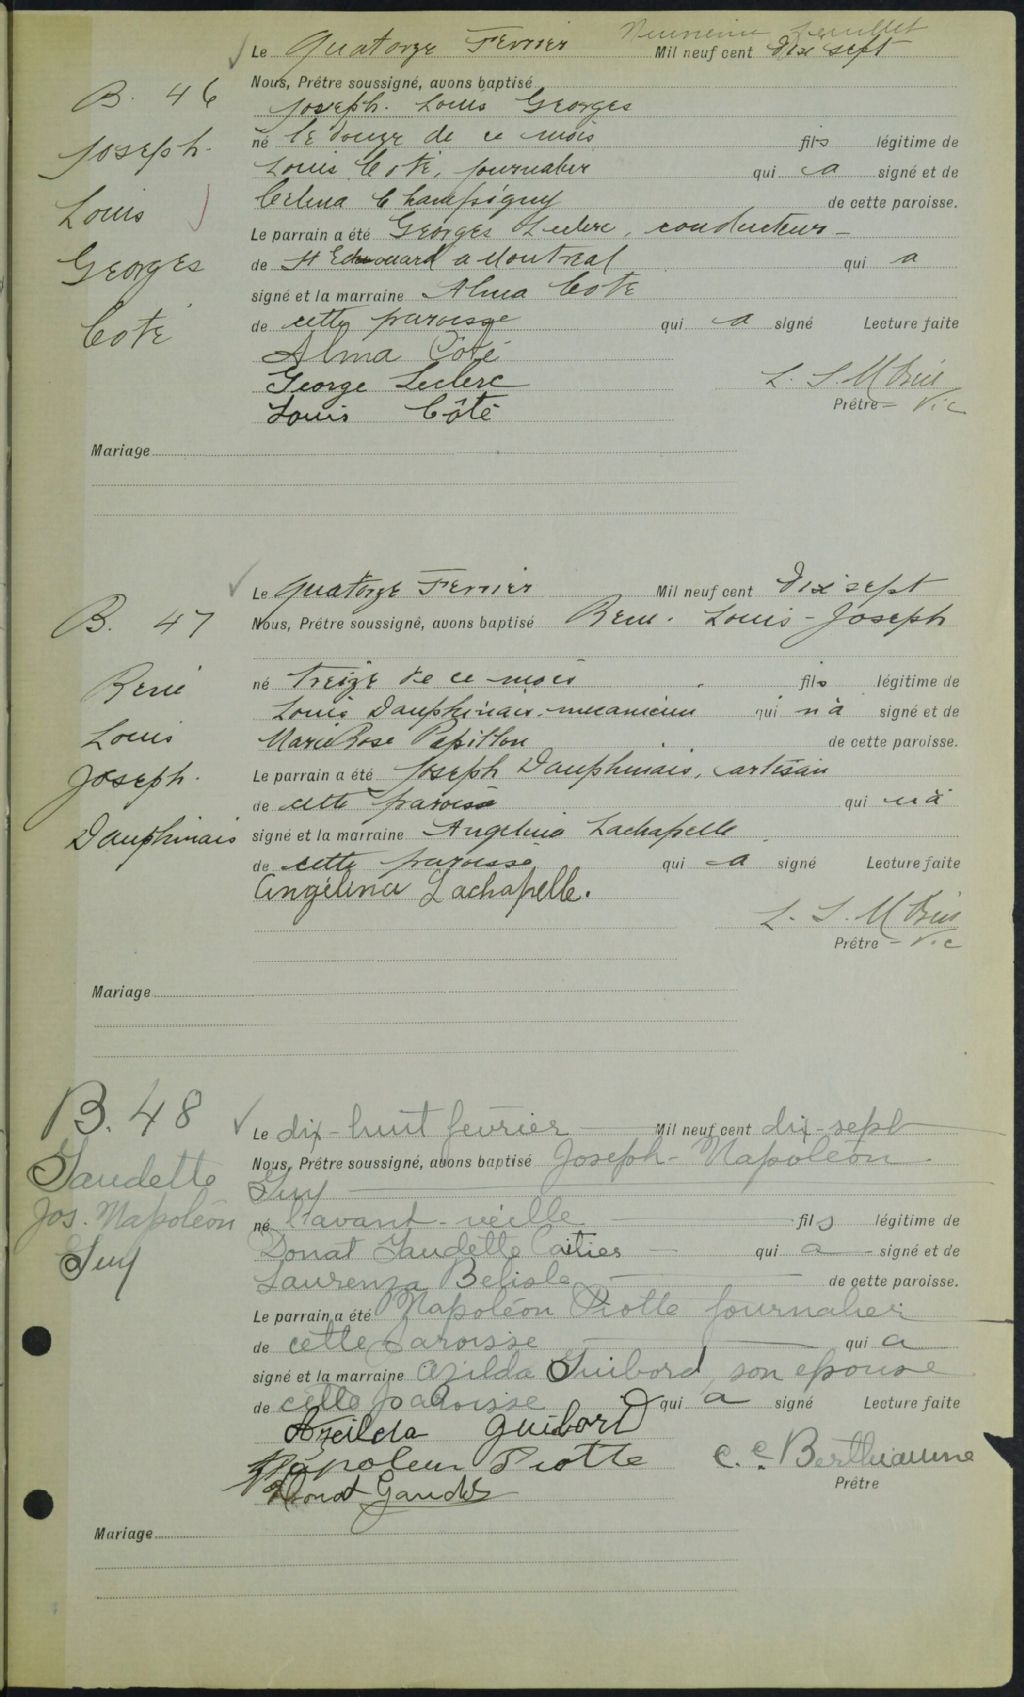 Neuvième feuillet
Le Quatorze Fevrier Mil neuf cent dix sept
B. 46
Nous, Prêtre soussigné, avons baptisé
Joseph. Louis Georges
Joseph.
né le douze de ce mois fils légitime de
Louis Coté, journalier qui a signé et de
Louis
Celina Champigny de cette paroisse.
Le parrain a été Georges Leclerc, conducteur
Georges
de St Edouard a Montreal qui a
signé et la marraine Alma Coté
Coté
de cette paroisse qui a signé Lecture faite
Alma Coté
George Leclerc
L. S.
Louis Côté
Prêtre Vic
Mariage
Le Quatorze Fevrier Mil neuf cent Dix sept
B. 47
Nous, Prêtre soussigné, avons baptisé René. Louis-Joseph
René
né treize de ce mois fils légitime de
Louis Dauphinais. mecanicien qui n'a signé et de
Louis
Marie Rose Papillon de cette paroisse.
Joseph.
Le parrain a été Joseph Dauphinais, artisan
de cette paroisse qui n'a
Dauphinais
signé et la marraine Angelina Lachapelle
de cette paroisse qui a signé Lecture faite
Angélina Lachapelle.
L. S.
Prêtre Vic
Mariage
B. 48
Le dix-huit février Mil neuf cent dix-sept
Gaudette
Nous, Prêtre soussigné, avons baptisé Joseph-Napoléon
Guy
Jos. Napoléon
né l'avant-veille fils légitime de
Guy
Donat Gaudette qui a signé et de
Laurenza Belisle de cette paroisse.
Le parrain a été Napoléon Piotte journalier
de cette Paroisse qui a
signé et la marraine Azilda Guibord, son epouse
de cette Paroisse qui a signé Lecture faite
Azeilda Guibord
Napoleon Piotte
C. E. Berthiaume
Donat Gaudet
Prêtre
Mariage